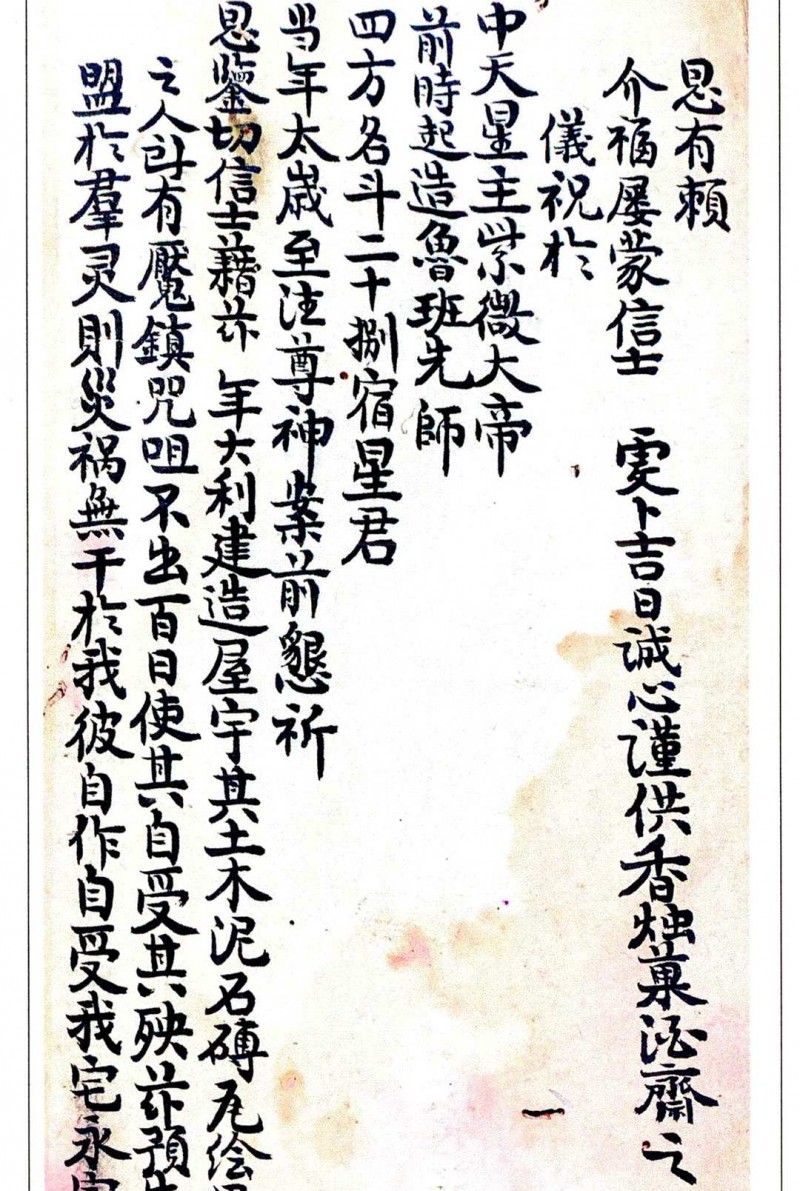 恩有賴
介福屡蒙信士 雯卜吉日誠心謹供香烛菓酒齋之
儀祝於
中天星主紫微大帝
前時起造魯班先師
四方各斗二十捌宿星君
当年太歲至注尊神案前懇祈
恩鑒切信士藉玆 年大利建造屋宇其土木泥石磚瓦绘
之人計有魘鎮咒咀不出百日使其自受其殃玆預
盟於羣灵則災祸無干於我彼自作自受我宅永
一